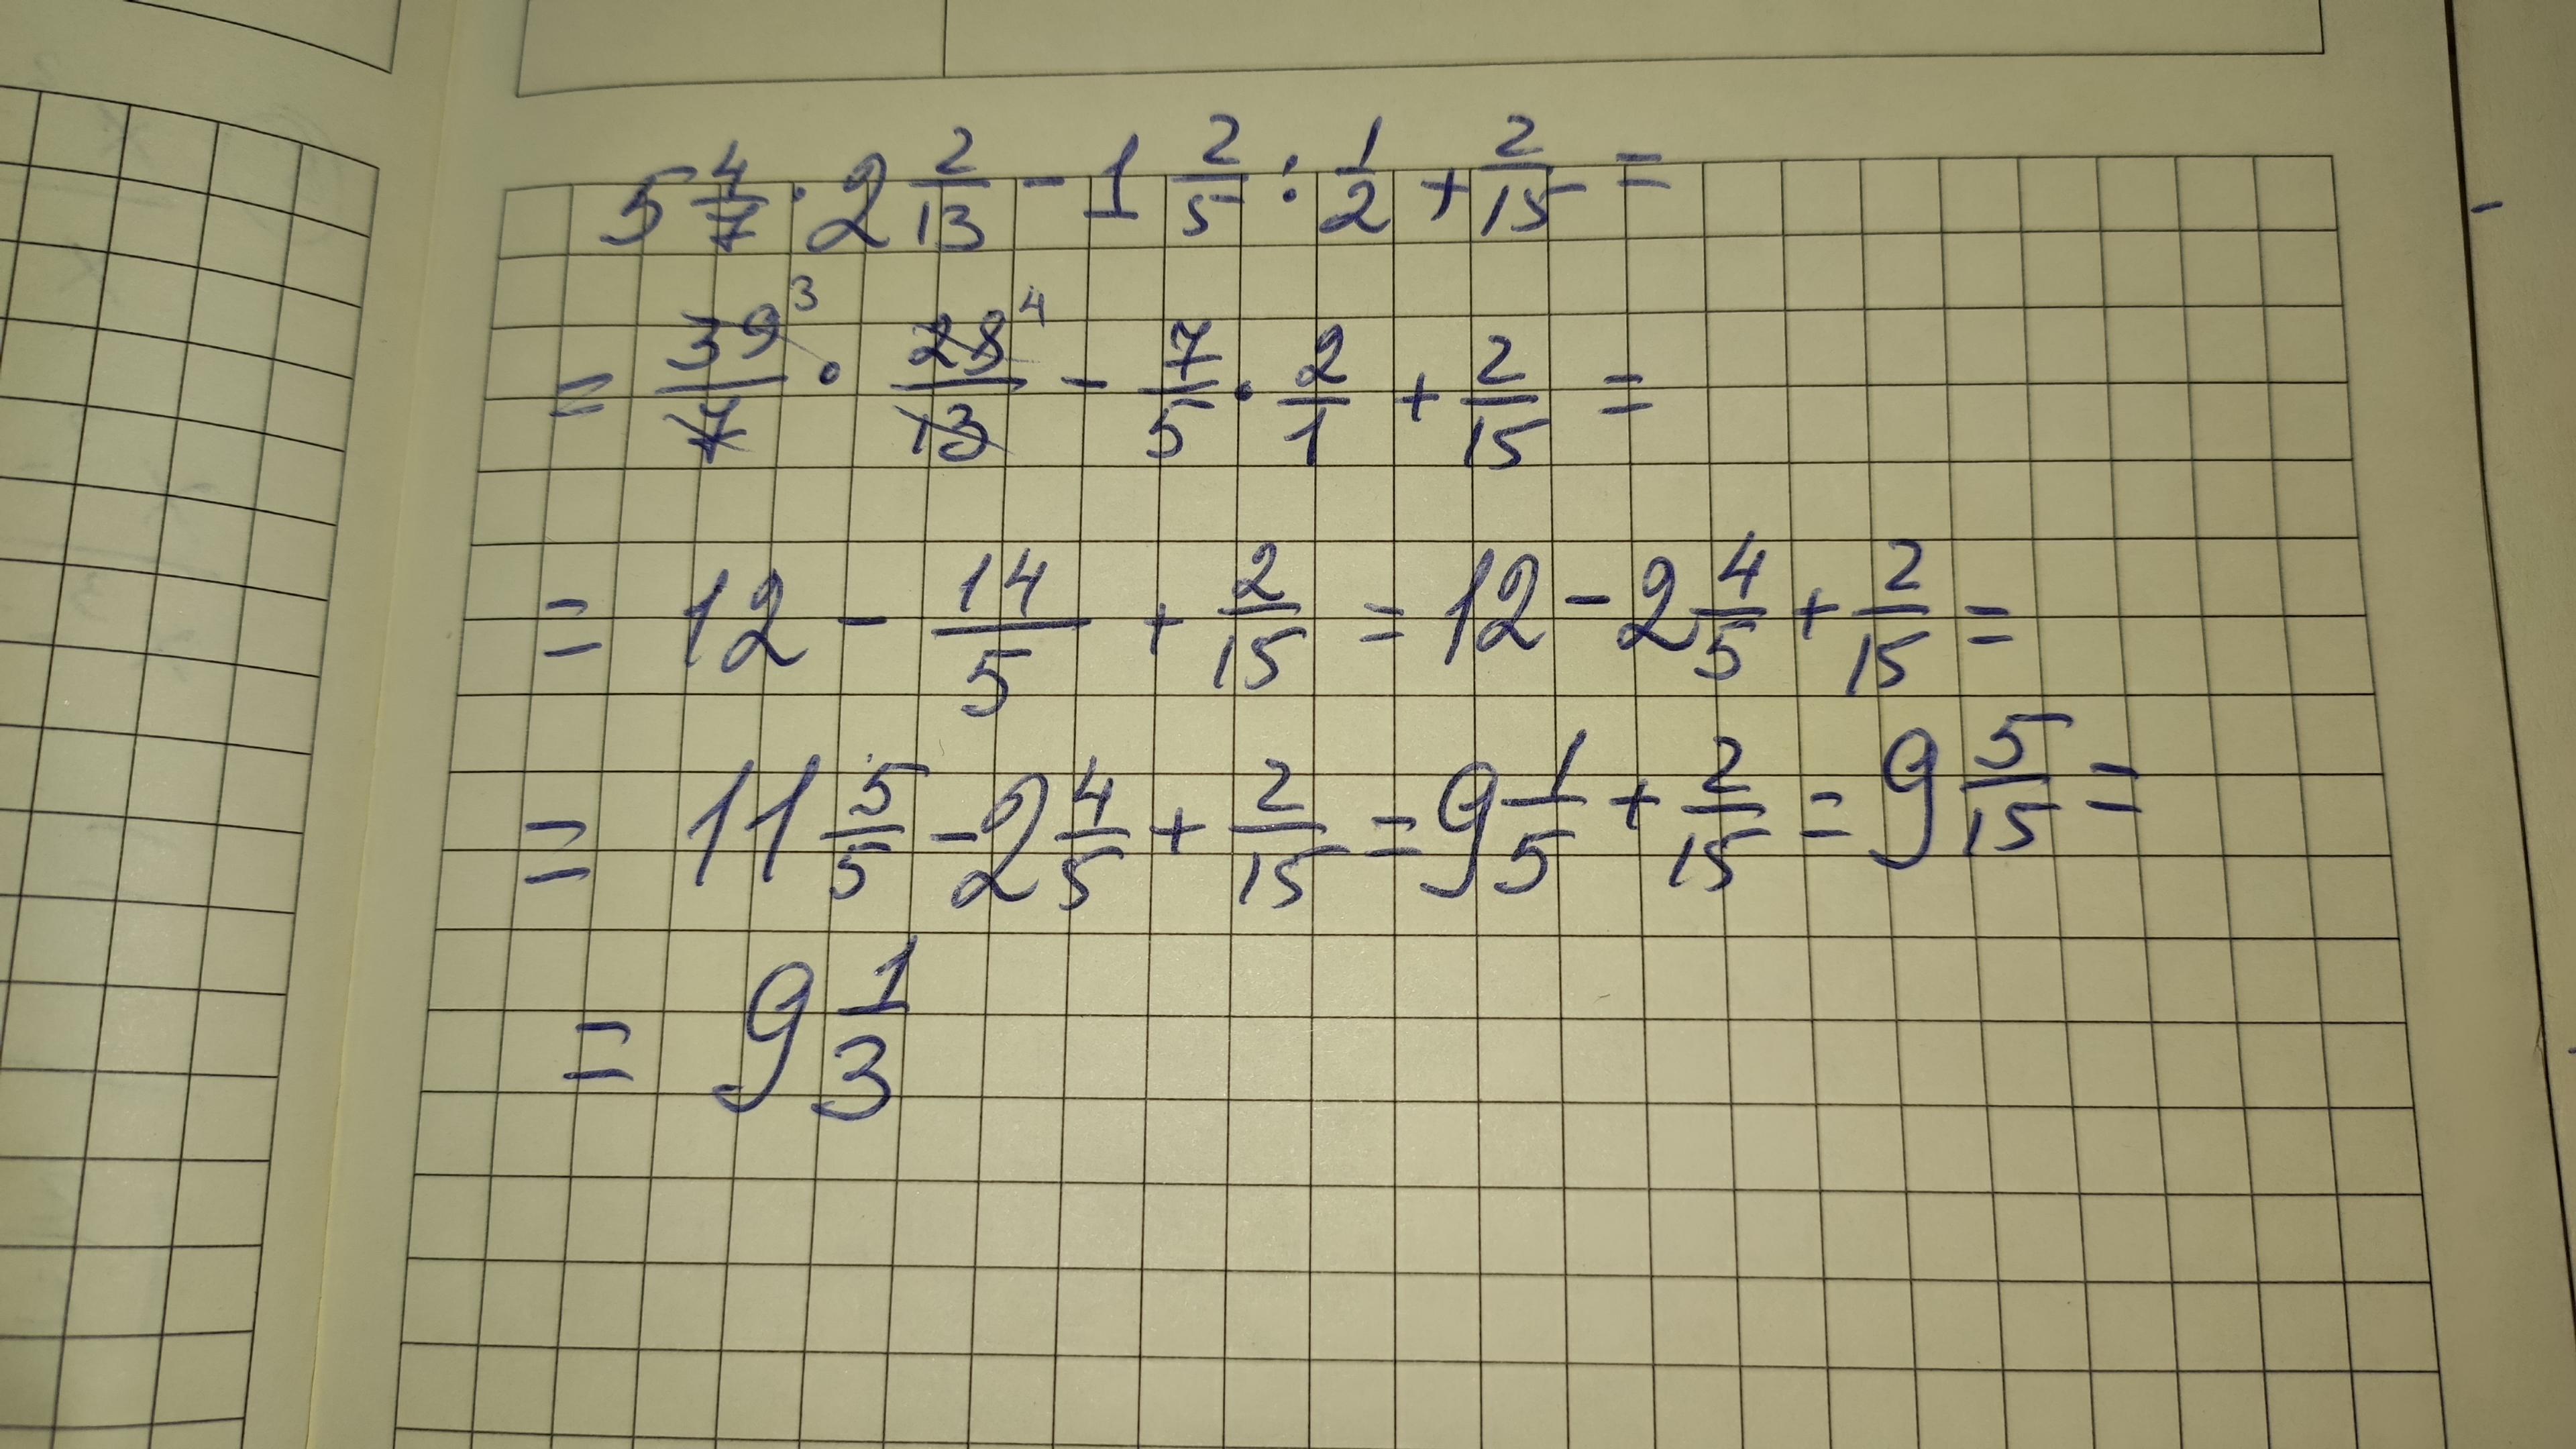 5 4/7 · 2 2/13 - 1 2/5 : 1/2 + 2/15 =
= 39/7 ³ · 28/13 ⁴ - 7/5 · 2/1 + 2/15 =
= 12 - 14/5 + 2/15 = 12 - 2 4/5 + 2/15 =
= 11 5/5 - 2 4/5 + 2/15 = 9 1/5 + 2/15 = 9 5/15 =
= 9 1/3